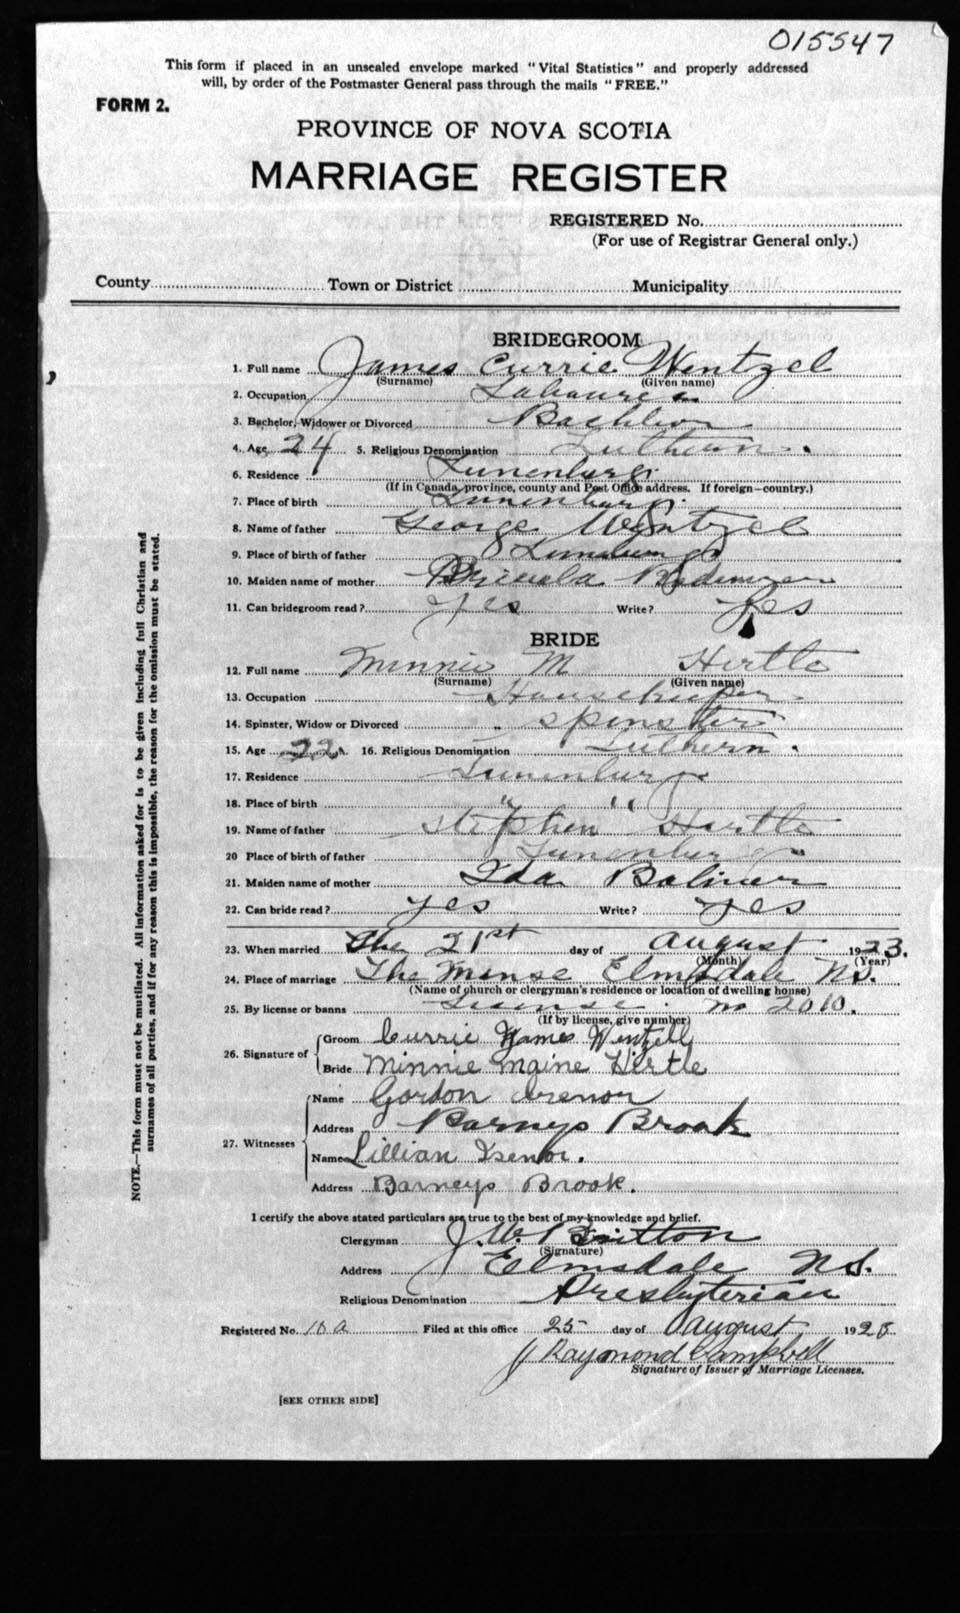 015547
This form if placed in an unsealed envelope marked "Vital Statistics" and properly addressed
will, by order of the Postmaster General pass through the mails "FREE."
FORM 2.
PROVINCE OF NOVA SCOTIA
MARRIAGE REGISTER
REGISTERED No.
(For use of Registrar General only.)
County Town or District Municipality
BRIDEGROOM
1. Full name James Currie Wentzel
(Surname) (Given name)
2. Occupation Labourer
3. Bachelor, Widower or Divorced Bachlior
4. Age 24 5. Religious Denomination Lutheran.
6. Residence Lunenburg
(If in Canada, province, county and Post Office address. If foreign—country.)
7. Place of birth Lunenburg.
8. Name of father George Wentzel
9. Place of birth of father Lunenburg
10. Maiden name of mother
11. Can bridegroom read? yes Write? yes
BRIDE
12. Full name Minnie M Hirtle
(Surname) (Given name)
13. Occupation Housekeeper
14. Spinster, Widow or Divorced spinster
15. Age 22 16. Religious Denomination Luthern.
17. Residence Lunenburg
18. Place of birth " "
19. Name of father Stephen Hirtle
20 Place of birth of father Lunenburg
21. Maiden name of mother Ida Bolivar
22. Can bride read? yes Write? yes
23. When married the 21st day of August 1923.
(Month) (Year)
24. Place of marriage The Manse Elmsdale N.S.
(Name of church or clergyman's residence or location of dwelling house)
25. By license or banns License. no 2010.
(If by license, give number)
26. Signature of Groom Currie James Wentzell
Bride Minnie Maine Hirtle
27. Witnesses Name Gordon Isenor
Address Barneys Brook
Name Lillian Isenor.
Address Barneys Brook.
I certify the above stated particulars are true to the best of my knowledge and belief.
Clergyman J. W. Britton
(Signature)
Address Elmsdale N.S.
Religious Denomination Presbyterian
Registered No. 10 a Filed at this office 25 day of August 1923
J Raymond Campbell
Signature of Issuer of Marriage Licenses.
[SEE OTHER SIDE]
NOTE.—This form must not be mutilated. All information asked for is to be given including full Christian and
surnames of all parties, and if for any reason this is impossible, the reason for the omission must be stated.